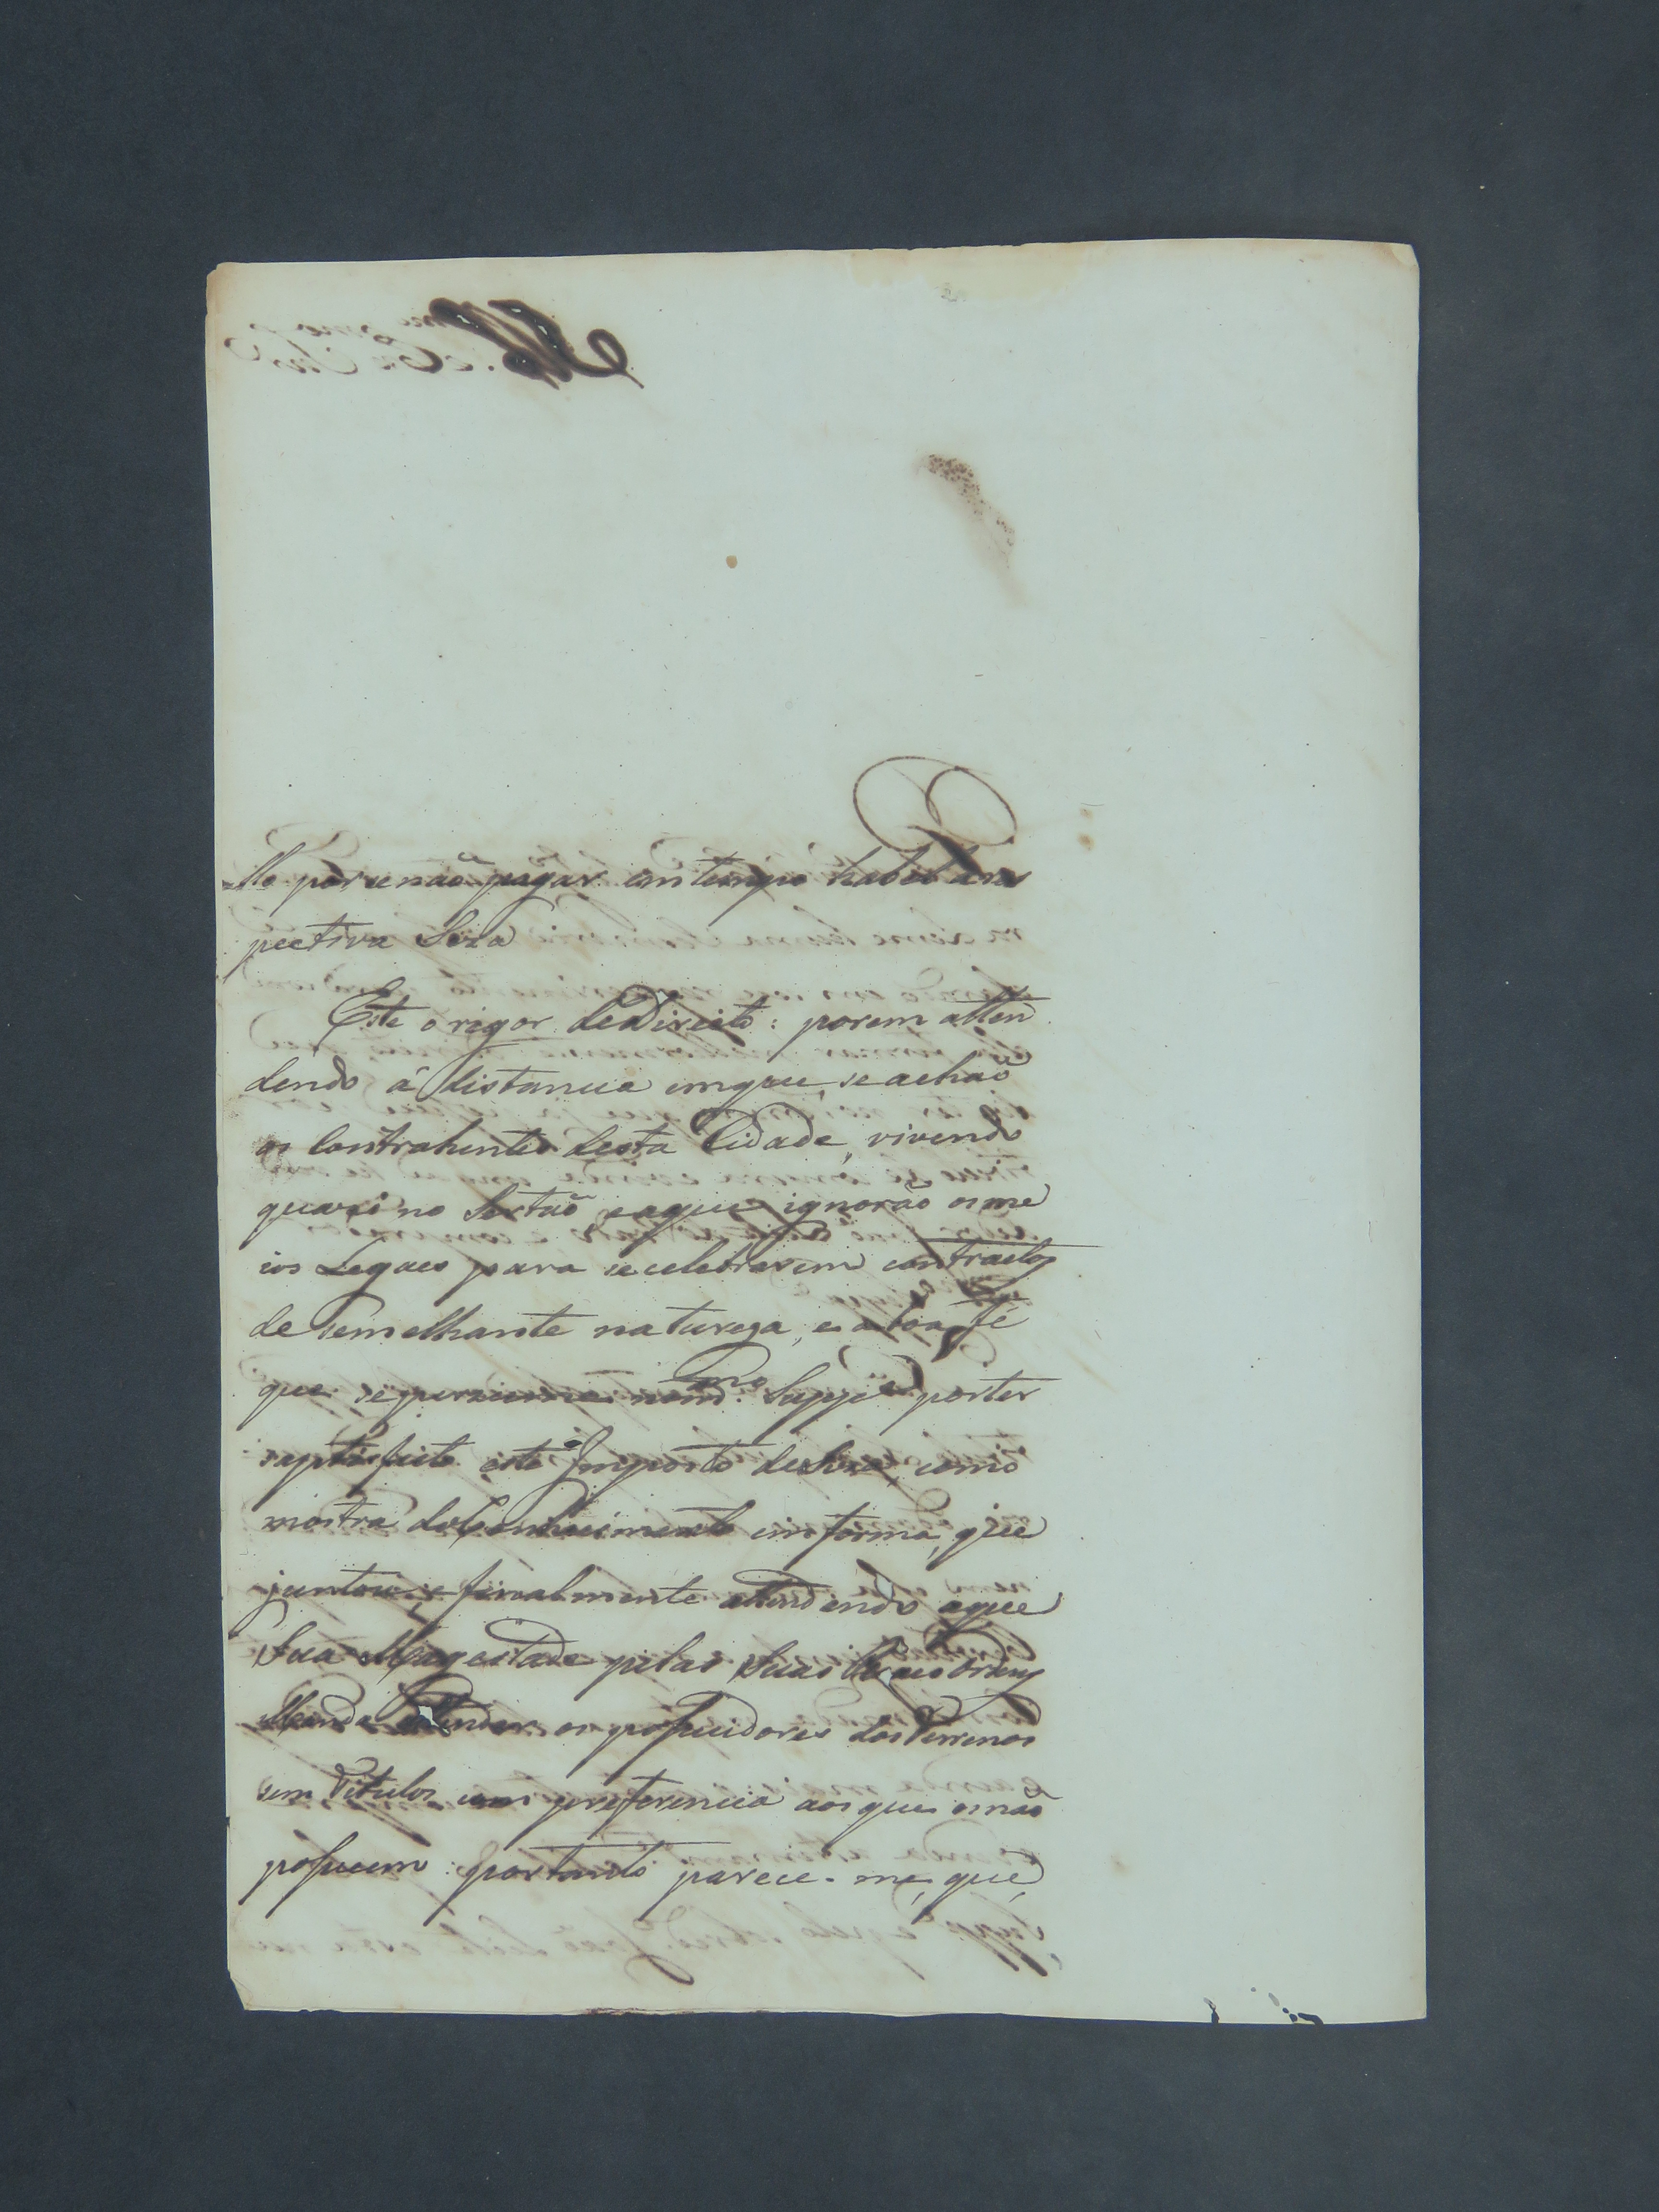 llo por se não pagar em tempo habil ares
pectiva Siza
Este o rigor de Direito: porem atten
dendo á distancia em que, se achaõ
os Contrahentes desta Cidade, vivendo
quazi no Sertaõ eaque ignoraõ os me
ios Legaes para se celebrarem contractos
de semelhante natureza, e a boa fé
que se prezume no m.mo Supp.e por ter
este Imposto de Siza, como
mostra do Conhecimento em forma, que
juntou; e finalmente attendendo aque
Sua Magestade pelas Suas Reaes Ordens
Manda attender os possuidores dos Terrenos
sem Titulos com preferencia aos que os não
possuem: portanto parece-me, que